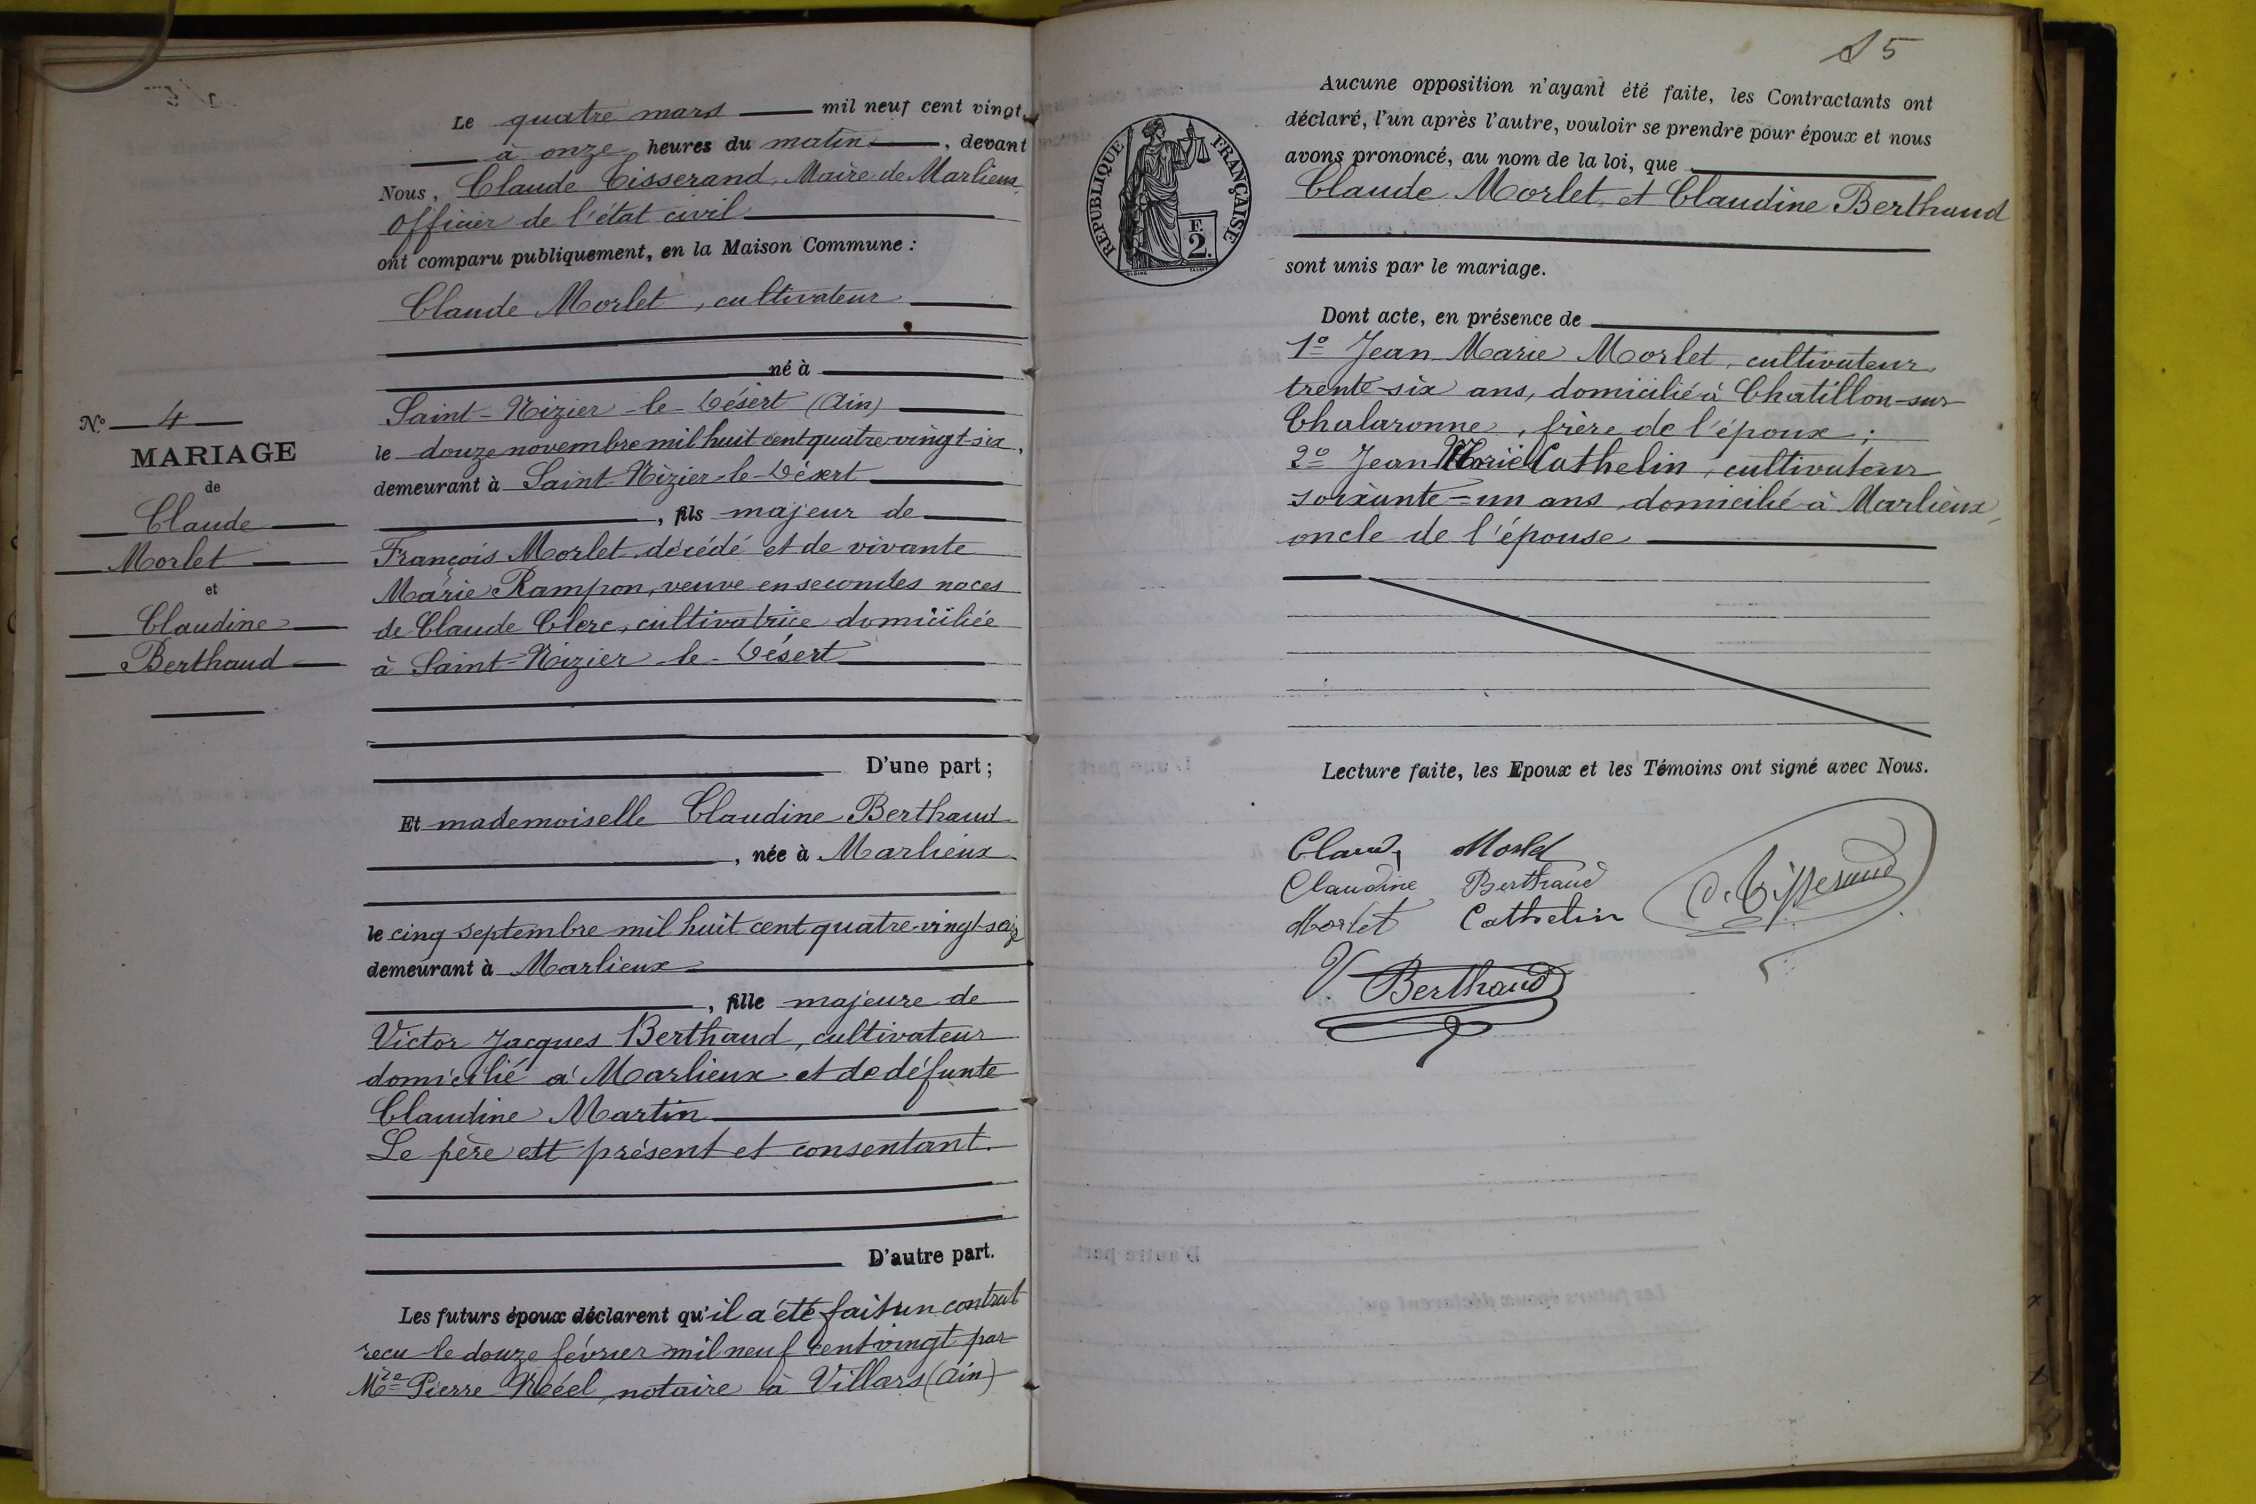 Le quatre mars mil neuf cent vingt,
à onze heures du matin, devant
Nous, Claude Tisserand, Maire de Marlieux,
Officier de l'état civil
ont comparu publiquement, en la Maison Commune :
Claude Morlet, cultivateur
né à
Saint-Nizier-le-Désert (Ain)
le douze novembre mil huit cent quatre-vingt-six,
demeurant à Saint-Nizier-le-Désert
, fils majeur de
François Morlet décédé et de vivante
Marie Rampon, veuve en secondes noces
de Claude Clerc, cultivatrice domiciliée
à Saint-Nizier-le-Désert
D'une part ;
Et mademoiselle Claudine Berthaud
, née à Marlieux
le cinq septembre mil huit cent quatre-vingt-seize
demeurant à Marlieux
, fille majeure de
Victor Jacques Berthaud, cultivateur
domicilié à Marlieux et de défunte
Claudine Martin
Le père est présent et consentant.
D'autre part.
Les futurs époux déclarent qu'il a été fait un contrat
reçu le douze février mil neuf cent vingt par
Pierre notaire à Villars (Ain)
N° 4
MARIAGE
de
Claude
Morlet
et
Claudine
Berthaud
15
RÉPUBLIQUE FRANÇAISE
F.
2.
Aucune opposition n'ayant été faite, les Contractants ont
déclaré, l'un après l'autre, vouloir se prendre pour époux et nous
avons prononcé, au nom de la loi, que
Claude Morlet et Claudine Berthaud
sont unis par le mariage.
Dont acte, en présence de
1° Jean Marie Morlet, cultivateur
trente-six ans, domicilié à Chatillon-sur-
Chalaronne, frère de l'époux ;
2° Jean Marie Cathelin, cultivateur
soixante-un ans, domicilié à Marlieux,
oncle de l'épouse
Lecture faite, les Epoux et les Témoins ont signé avec Nous.
Claude Morlet
Claudine Berthaud
C. Tisserand
Morlet Cathelin
V. Berthaud